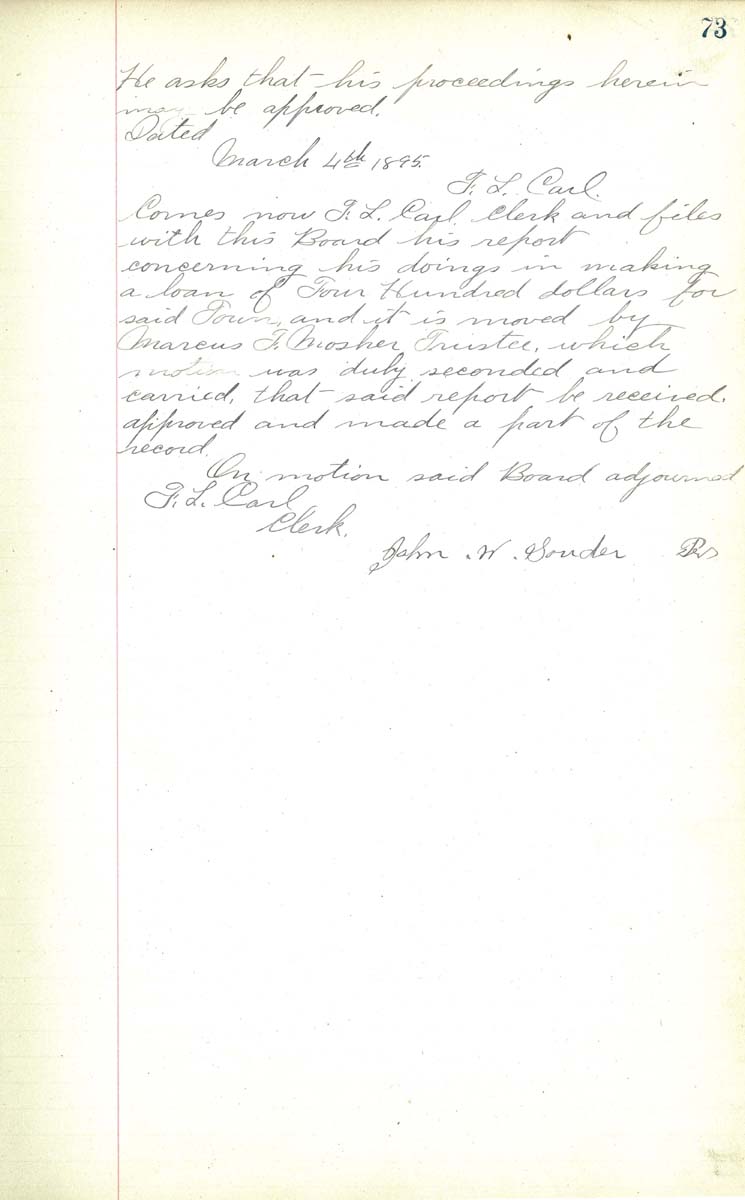 73
He asks that his proceedings herein
may be approved.
Dated
March 4th 1895.
F. L. Carl.
Comes now F. L. Carl Clerk and files
with this Board his report
concerning his doings in making
a loan of Four Hundred dollars for
said Town, and it is moved by
Marcus F. Mosher Trustee, which
motion was duly seconded and
carried, that said report be received.
approved and made a part of the
record.
On motion said Board adjourned
F. L. Carl
Clerk.
John W. Souder